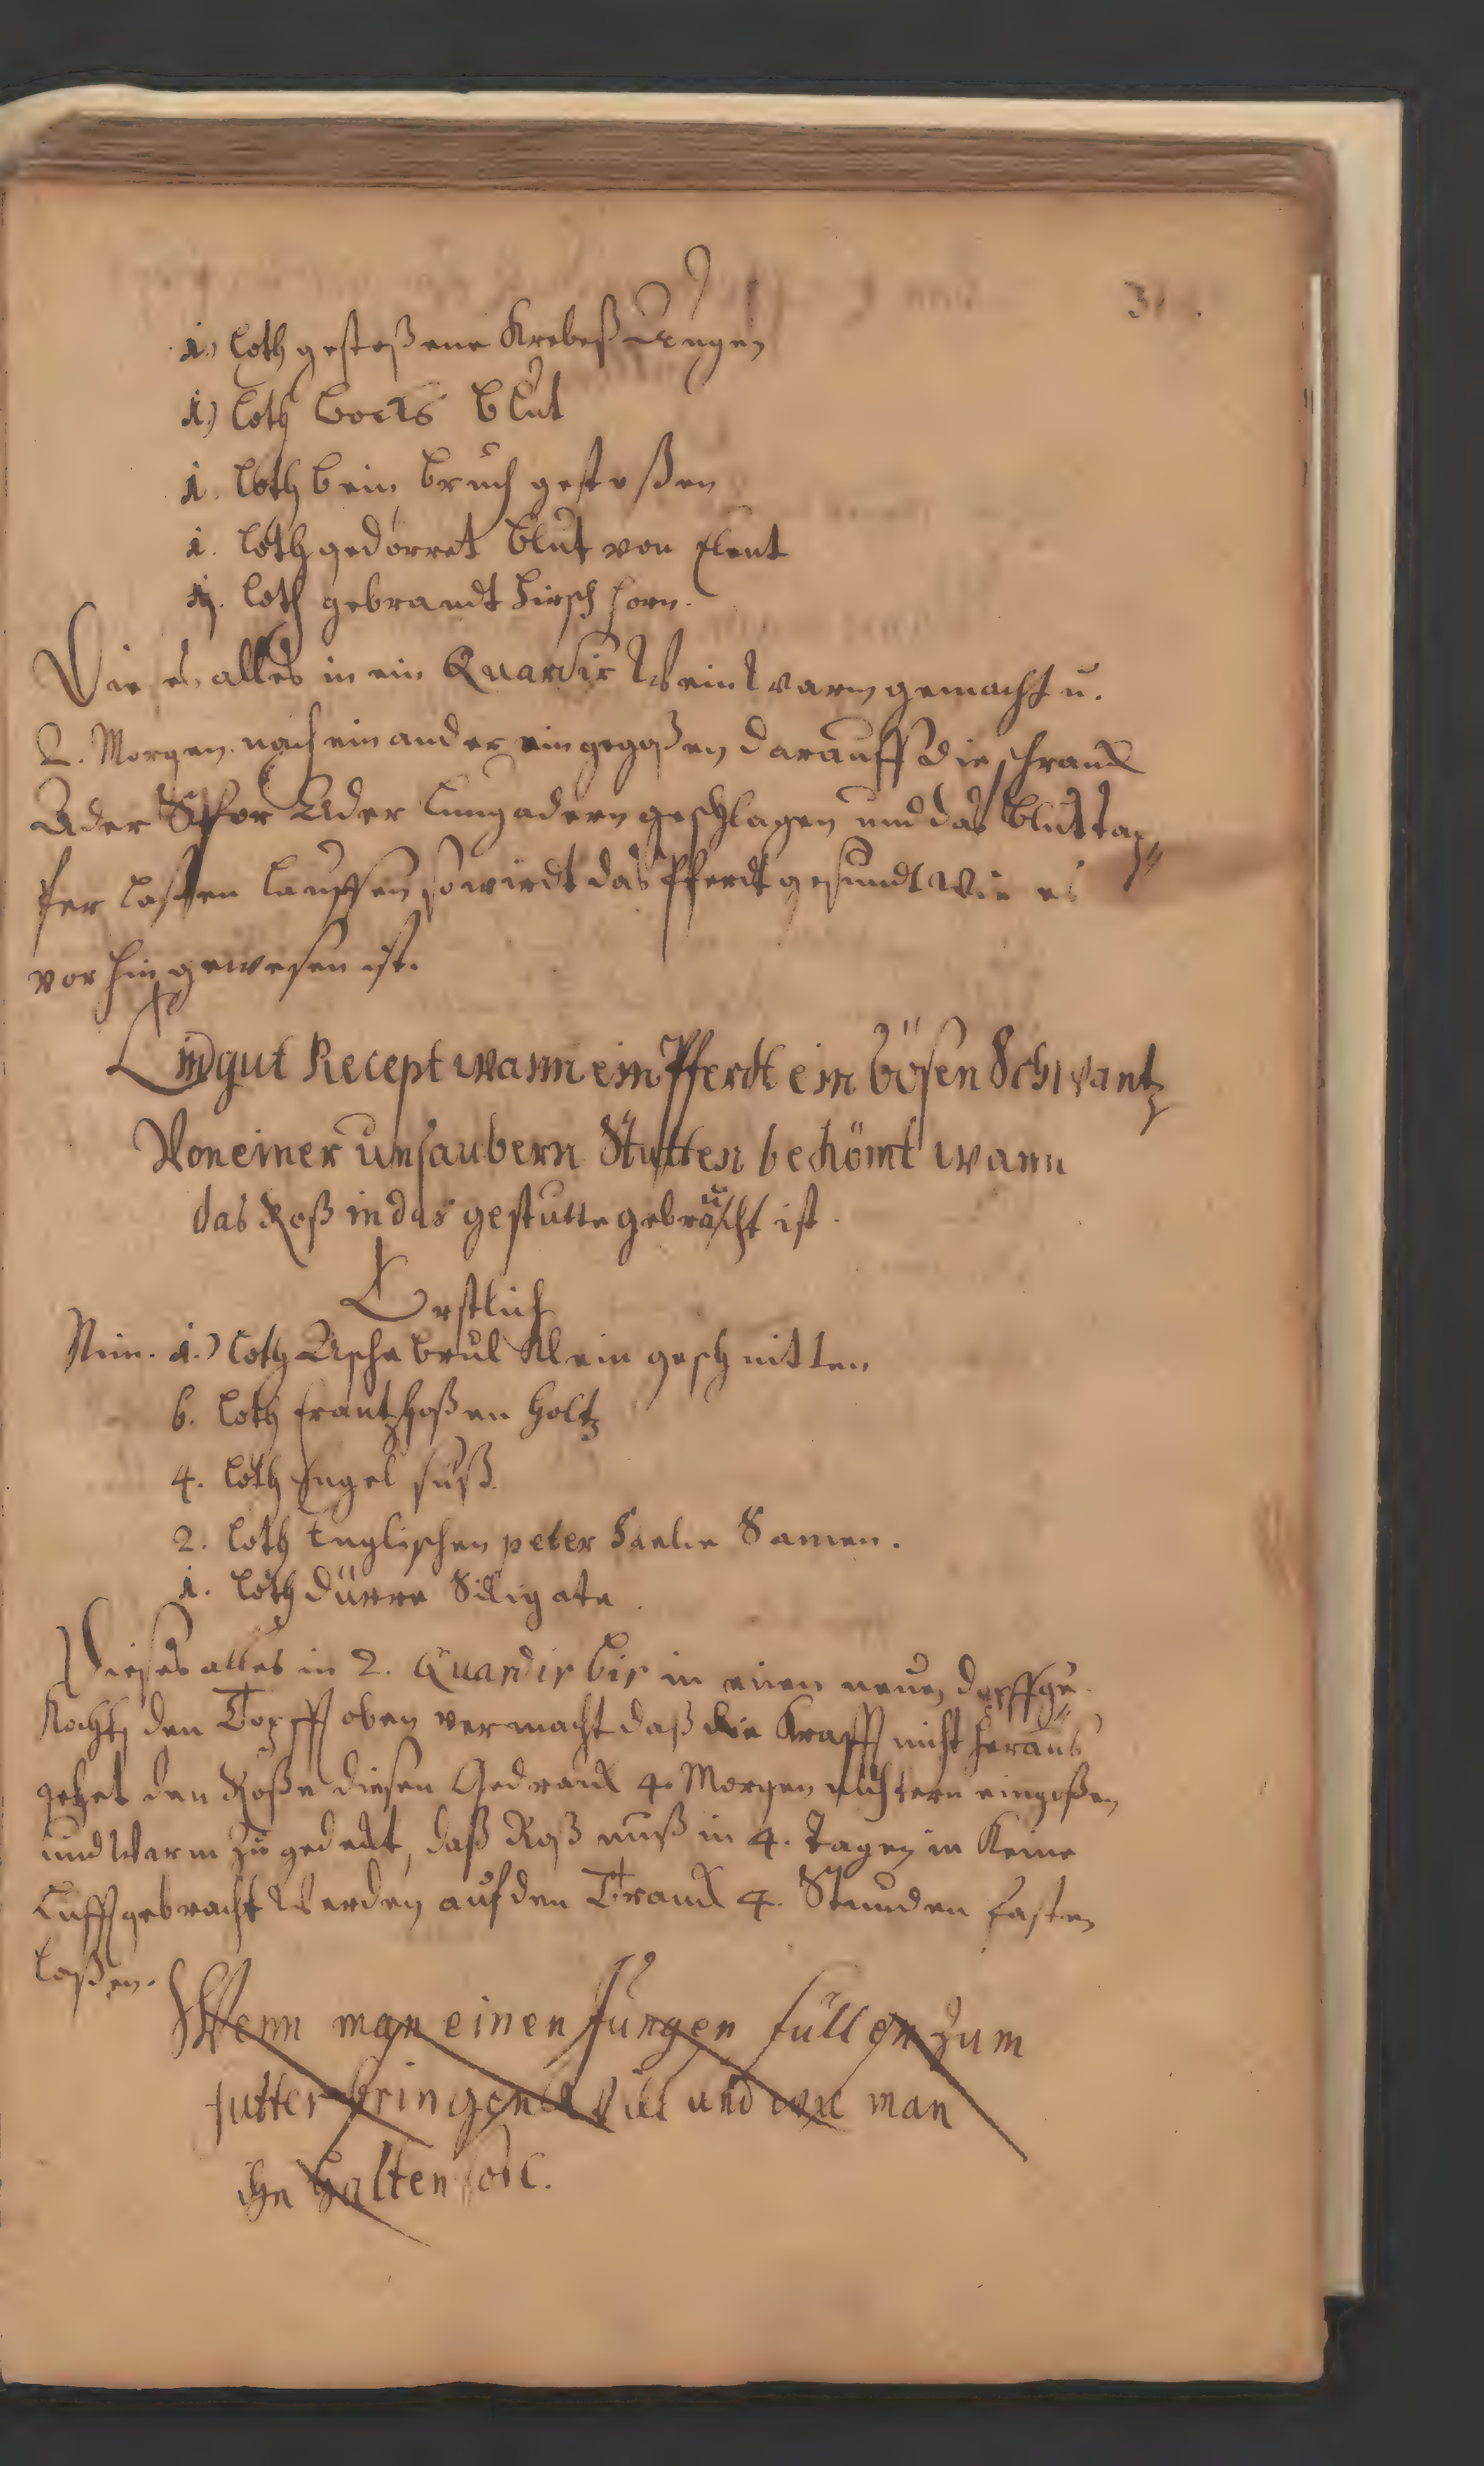 1.) loth gestoßene Krebeß Augen
1.) loth bocks blut
1. loth bein bruch gestoßen
1. loth gedörret blut von Elent
loth gebrandt Hirsch horn.
Die es alles in ein Quardir Wein warm gemacht u.
2. Morgen nach ein ander ein gegoßen darauff die schranck
Ader Spor Ader Lungadern geschlagen und das blut tap„
fer laßen lauffen so wirdt das Pferdt gesundt Wie es
vor hin gewesen ist.
Ein gut Recept wann ein Pferdt ein bösen Schwantz
Von einer unsaubern Stutten bekömt wann
das Roß in das gestutte gebraucht ist.
Erstlich
Nim. 1.) loth Klein geschnitten
6. loth frantzhoßen Holtz
4. loth Engel süß
2. loth Englischen peter Samen.
1. loth dürre
Dieses alles in 2. Quardir bir in einen neuen dopff ge„
Kocht, den Topff oben vermacht daß die Krafft nicht heraus
gehet den Roße diesen Gedranck 4. Morgen nichtern eingoßen
und Warm zu gedeckt, daß Roß muß in 4. Tagen in Keine
Lufft gebracht Werden auf den Tranck 4. Stunden fasten
laßen.
Wenn man einen Jungen füllen zum
futter bringen will und wie man
ihn halten soll.